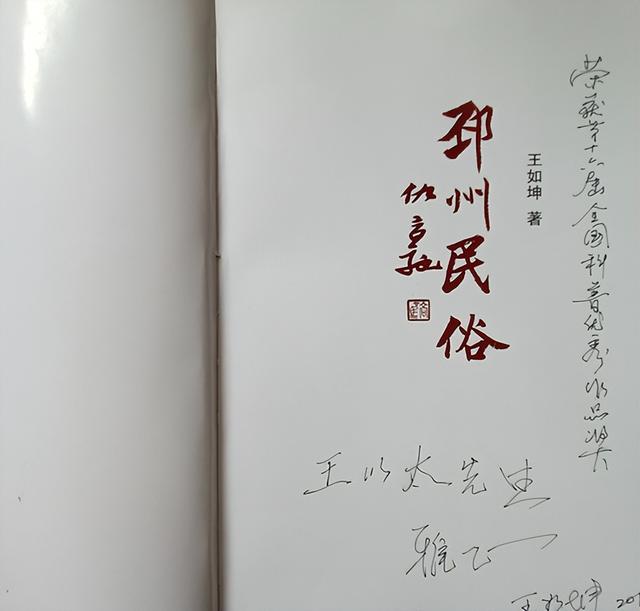 荣获第十六届全国科普优秀作品奖
王如坤 著
邳州民俗
王以太先生
雅正
王如坤
201